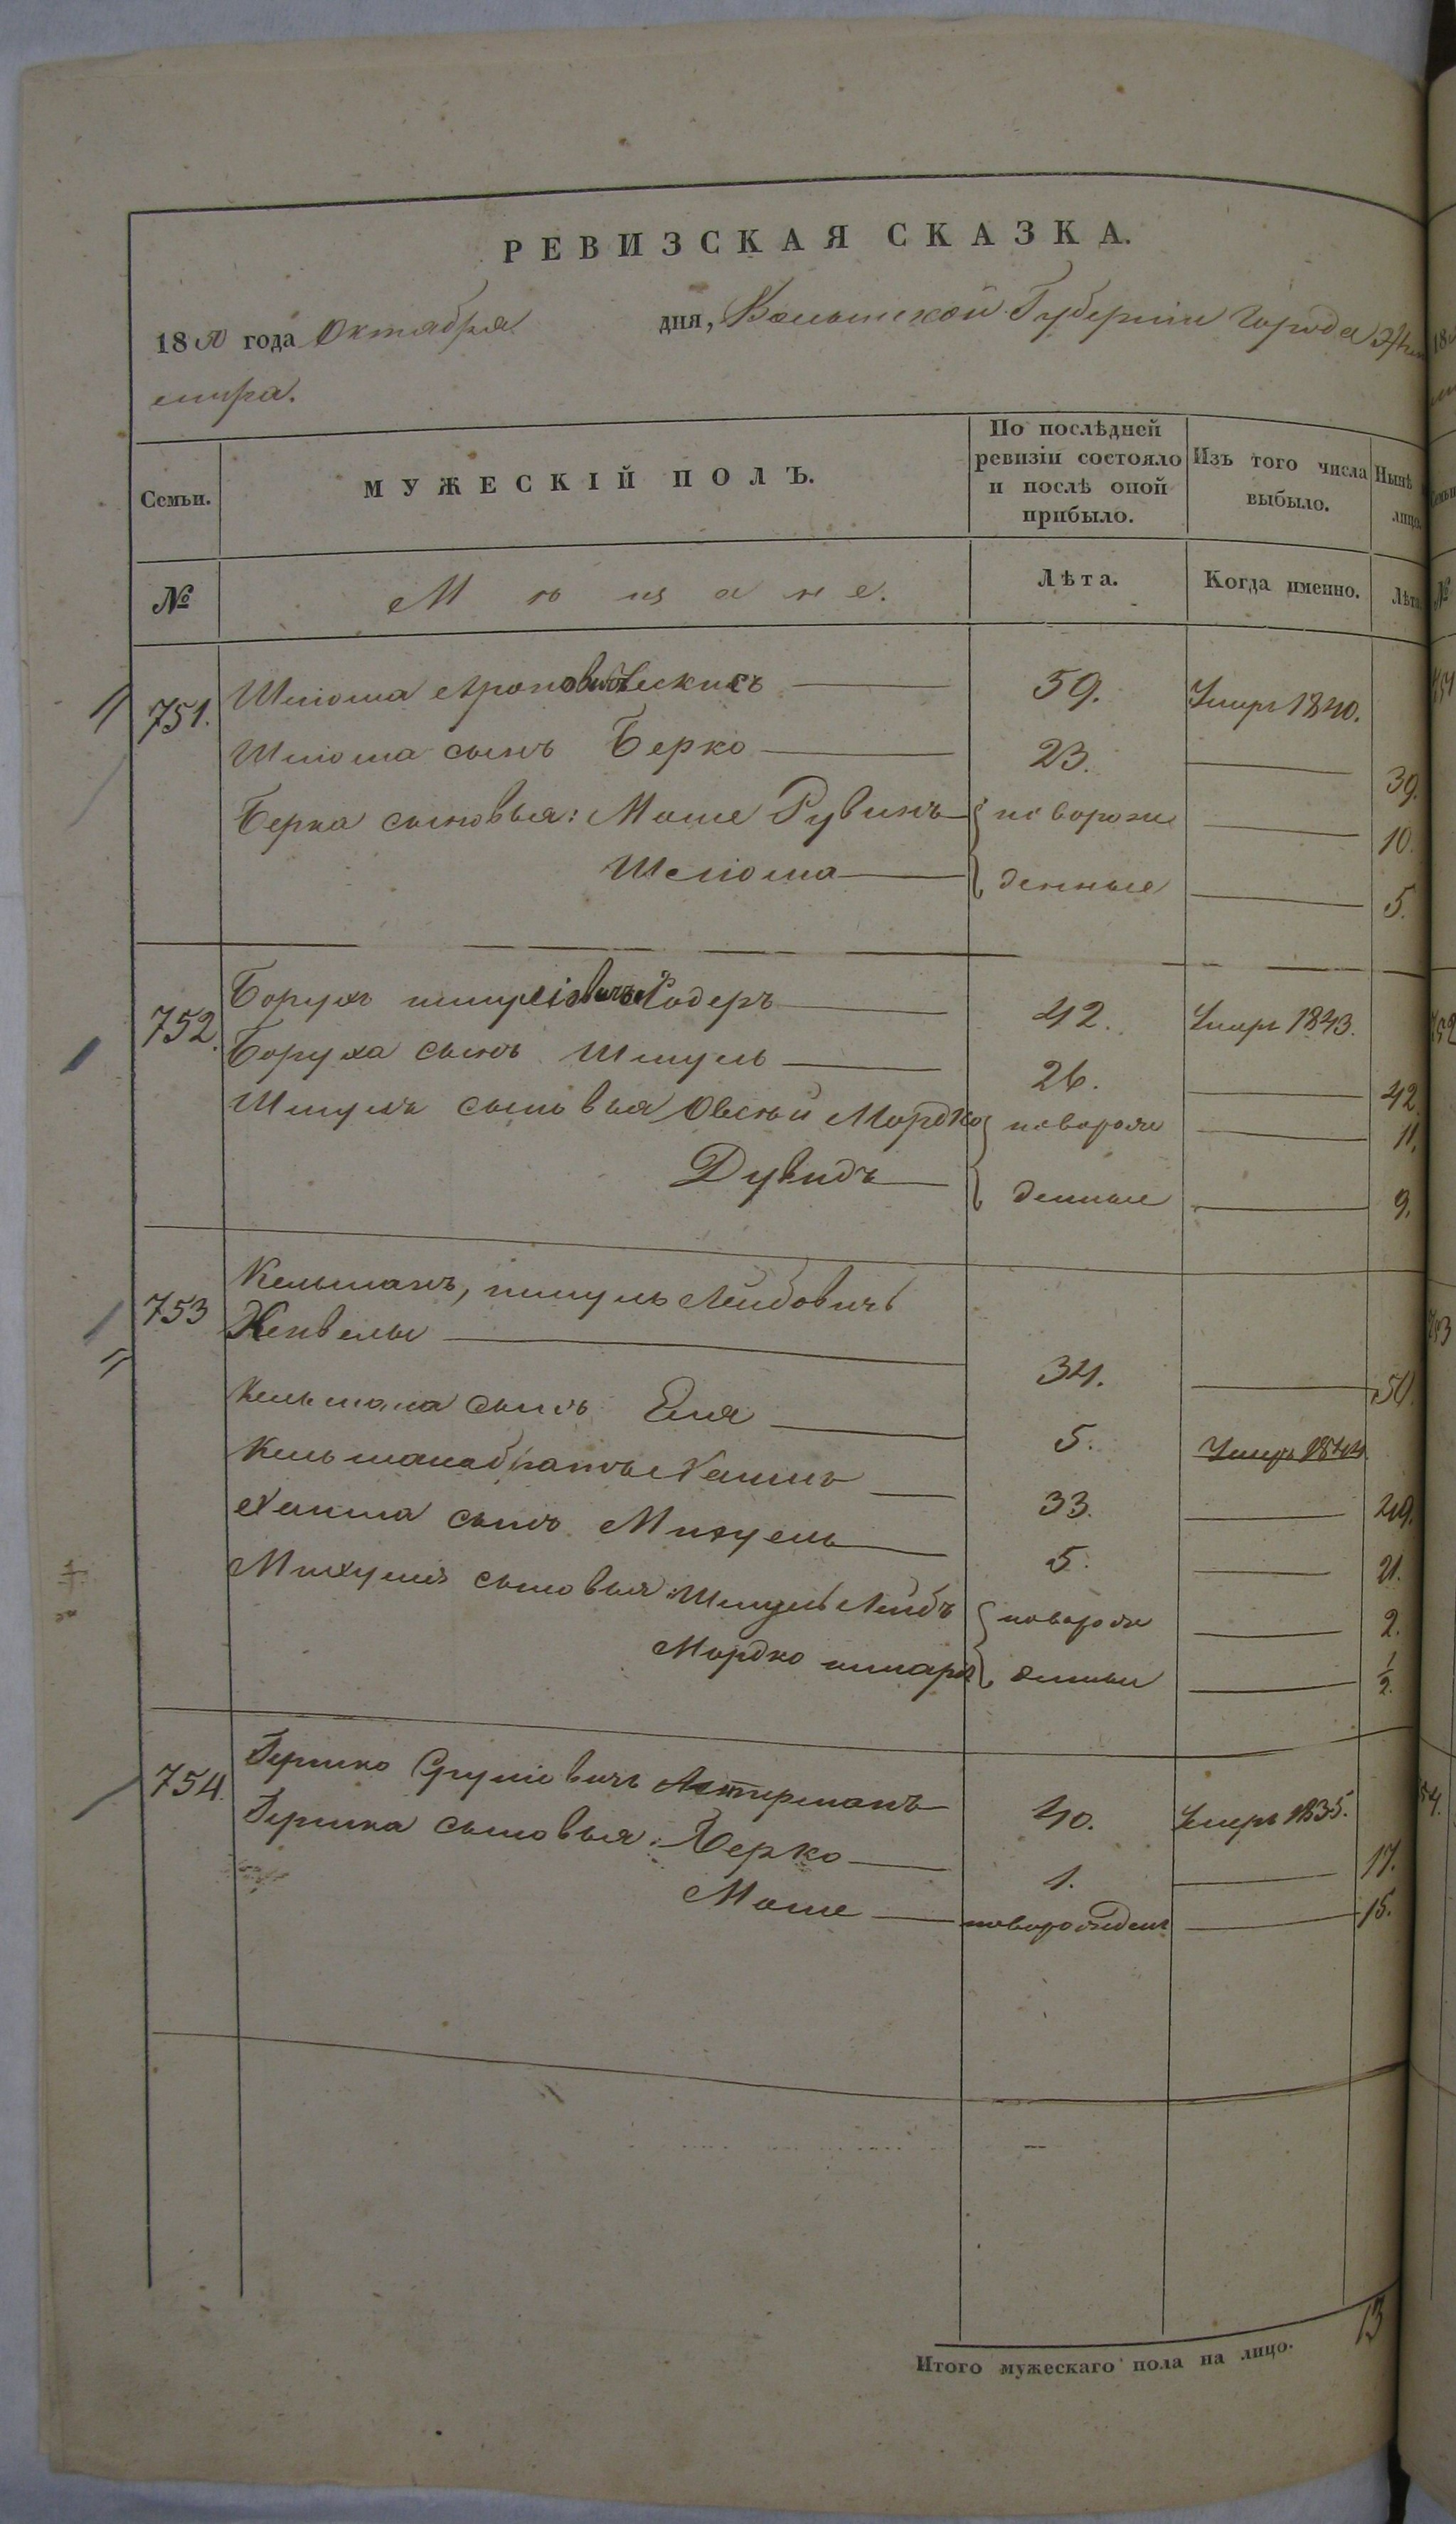 РЕВИЗСКАЯ СКАЗКА.
1850 года Октября дня, Волынской Губернии города Жито
мира.
Семьи. МУЖЕСКІЙ ПОЛЪ. По послѣдней ревизіи состояло и послѣ оной прибыло. Изъ того числа выбыло. Нынѣ лицо.
№ Мѣщане. Лѣта. Когда именно. Лѣта
751. Шлiома Ароновичъ 59. Умеръ 1840.
Шлiома сынъ Берко 23. 39.
Берка сыновья: Моше Рувинъ новорож 10.
Шлiома денные 5.
752. Борухъ Шмулiовичъ 42. Умеръ 1843.
Боруха сынъ Шмуль 26. 42.
Шмуля сыновья Овсѣй Мордко новорож 11.
Дувидъ денные 9.
753 Кельманъ, Шмуль Лейбовичъ
34. 50.
Кельмана сынъ Еля 5. Умеръ 1844
Кельмана братъ Хаимъ 33. 49.
Хаима сынъ Михуель 5. 21.
Михуеля сыновья: Шмуль Лейбъ новорож 2.
Мордко денные 1/2.
754. Гершко Сруліовичъ 40. Умеръ 1835.
Гершка сыновья: Берко 1. 17.
Моше новорожден 15.
Итого мужескаго пола на лицо. 13